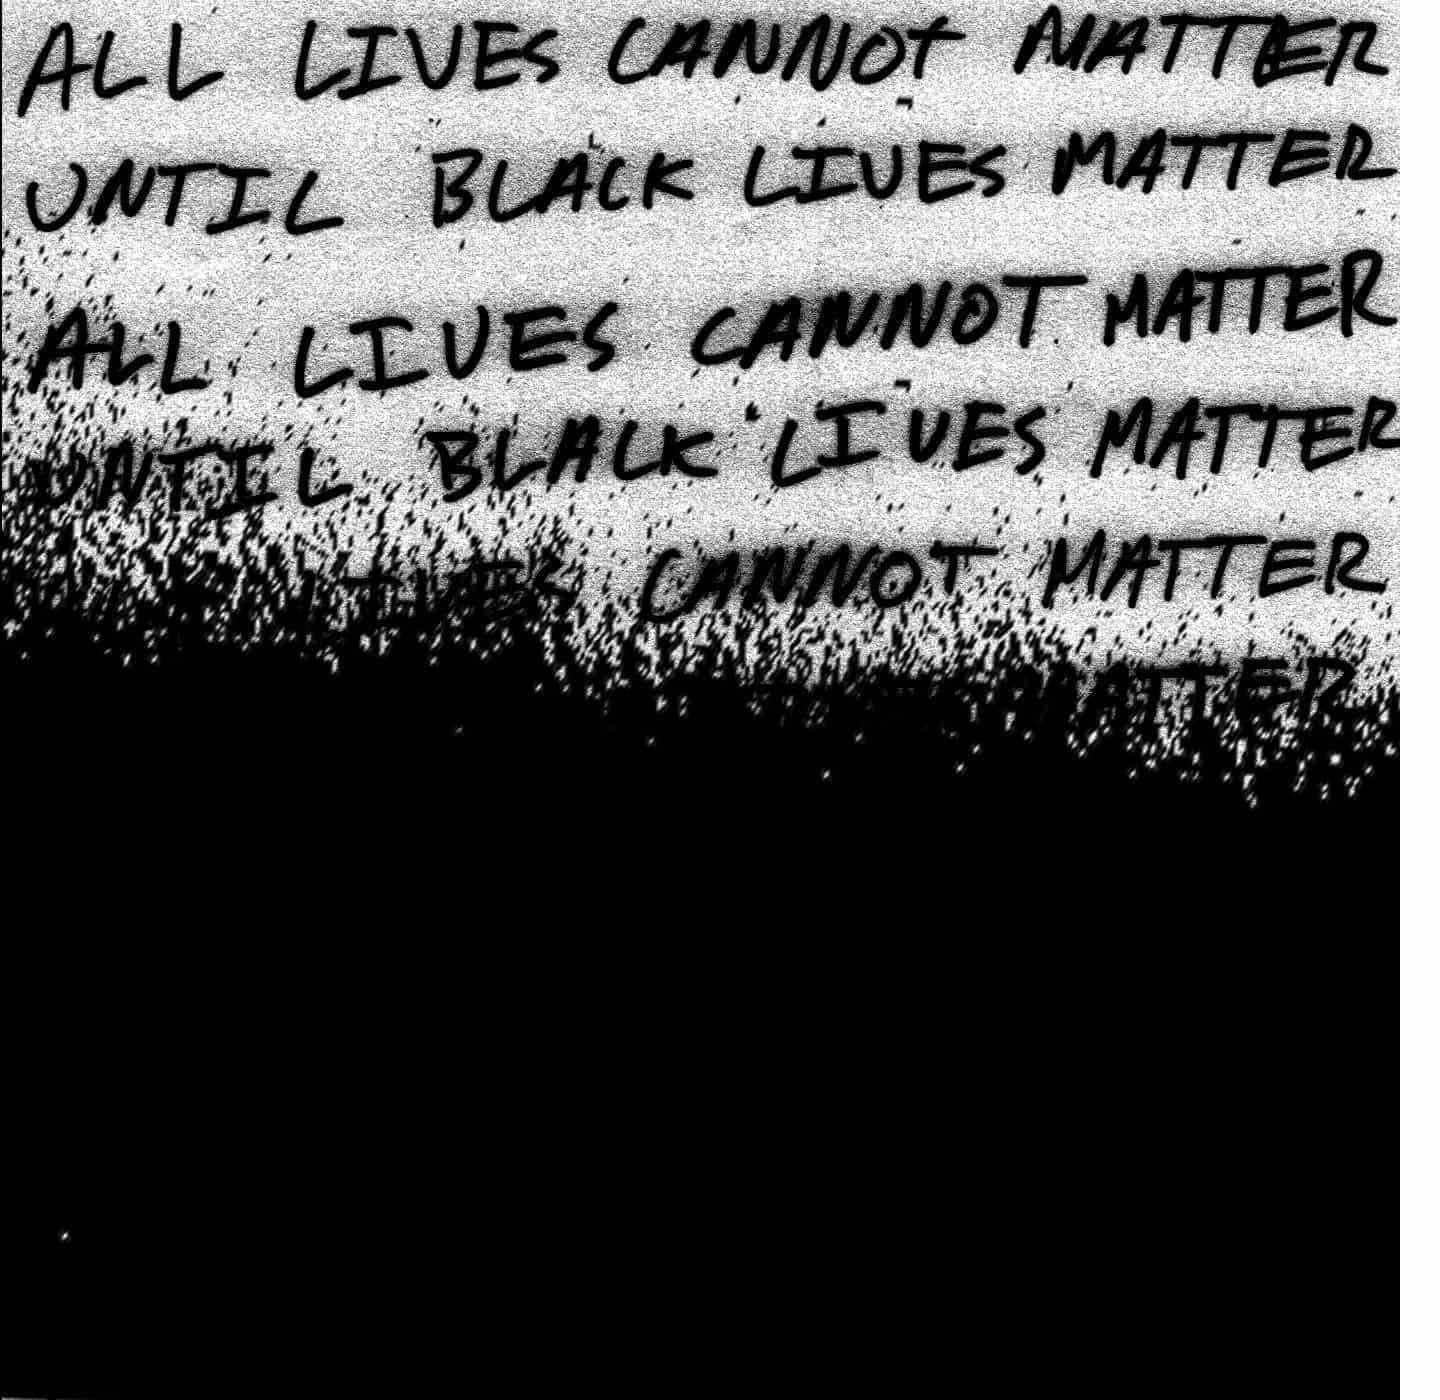 ALL LIVES CANNOT MATTER
UNTIL BLACK LIVES MATTER
ALL LIVES CANNOT MATTER
UNTIL BLACK LIVES MATTER
LIVES CANNOT MATTER
MATTER